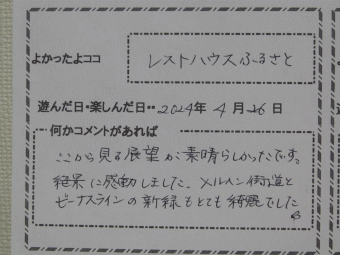 よかったよココ レストハウスふるさと
遊んだ日・楽しんだ日・・2024年 4月 26日
何かコメントがあれば
ここから見る展望が素晴らしかったです。
結果に感動しました。メルヘン街道と
ビーナスラインの新緑もとても綺麗でした